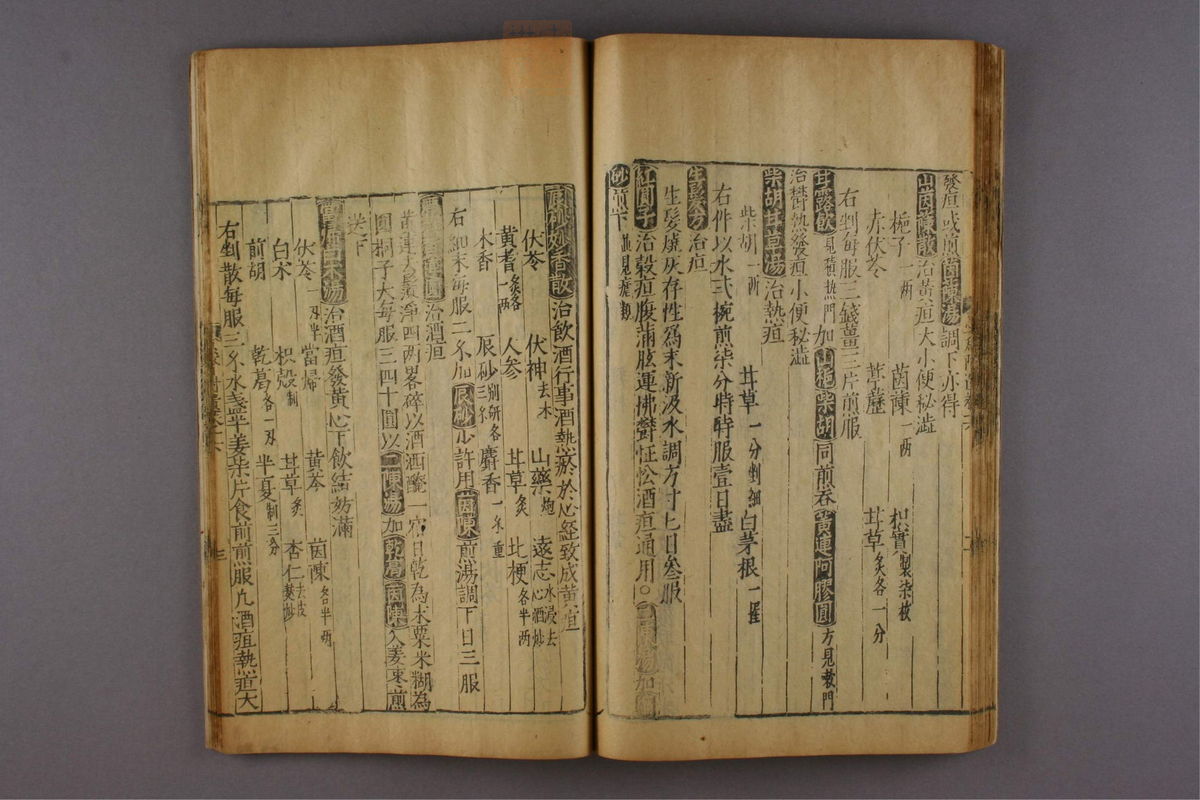 發疸或煎茵蔯湯調下亦得
山茵蔯散治黃疸大小便秘澁
梔子一兩 茵蔯一兩 枳實製柒枚
赤伏苓 葶藶 甘草炙各一分
右剉每服三錢薑三片煎服
甘露飲見積热門加山梔柴胡同煎吞黃連阿膠圓方見教門
治鬱热發疸小便秘澁
柴胡甘豆湯治熱疸
柴胡一兩 甘草一分剉細 白茅根一握
右件以水弍椀煎柒分時時服壹日盡
生髮方治疸
生髮燒灰存性爲末新汲水調方寸匕日叁服
紅圓子治穀疸腹滿眩運怫鬱怔忪酒疸通用○二陳湯加縮
砂煎下並見瘧類
辰砂妙香散治飲酒行事酒熱瘀於心經致成黃疸
伏苓 伏神去木 山藥炮 遠志水浸去心酒炒
黄耆炙各一兩 人参 甘草炙 北梗各半兩
木香 辰砂別研各三分 麝香一分重
右細末每服二分加辰砂少許用茵陳煎湯調下日三服
治酒疸
黃連大去鬚淨四兩畧碎以酒洒醃一宿日乾為末粟米糊為
圓梧子大每服三四十圓以二陳湯加乾葛茵陳入姜棗煎
送下
當歸白朮湯治酒疸發黃心下飲結妨滿
伏苓一刄半 當歸 黃芩 茵蔯各半兩
白术 枳殼制 甘草炙 杏仁去皮麩炒
前胡 乾葛各一刄 半夏制三分
右剉散每服三分水盞半姜柒片食前煎服凢酒疸熱道大